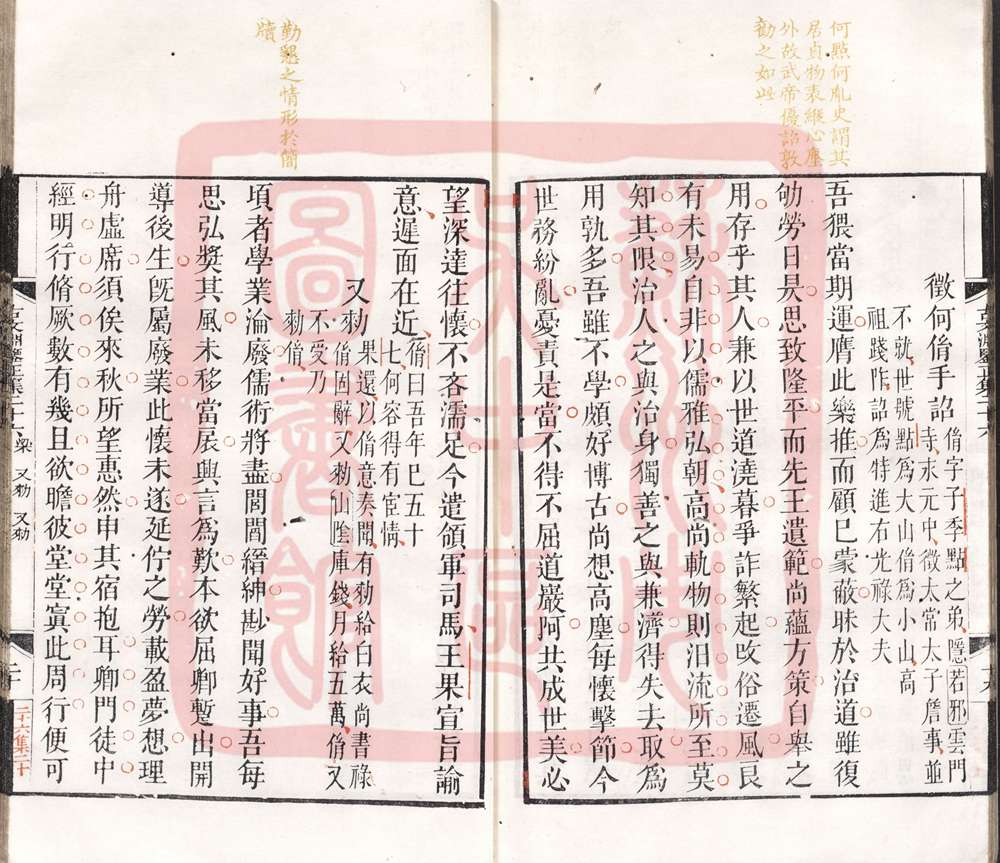 何點何胤史謂其
居貞物表縱心塵
外故武帝優詔敦
勸之如此
徵何脩手詔
脩字子季點之弟隱若邪雲門
寺永元中徵太常太子詹事並
不就世號點為大山脩為小山高
祖踐阼詔為特進右光祿大夫
吾猥當期運膺此樂推而顧巳蒙蔽昧於治道雖復
劬勞日昃思致隆平而先王遺範尚蘊方策自舉之
用存乎其人兼以世道澆暮爭詐繁起攺俗遷風良
有未易自非以儒雅弘朝高尚軌物則汨流所至莫
知其限治人之與治身獨善之與兼濟得失去取為
用孰多吾雖不學頗好博古尚想高塵每懷擊節今
世務紛亂憂責是當不得不屈道巖阿共成世美必
勤懇之情形於簡
牘
望深達往懷不吝濡足今遣領軍司馬王果宣旨諭
意遲面在近
脩曰吾年巳五十
七何容得有宦情
又勑
果還以脩意奏聞有勑給白衣尚書祿
脩固辭又勑山陰庫錢月給五萬脩又
不受乃
勑脩
頃者學業淪廢儒術將盡閭閻縉紳尠聞好事吾每
思弘獎其風未移當扆興言為歎本欲屈卿蹔出開
導後生旣屬廢業此懷未遂延佇之勞載盈夢想理
舟虛席須俟來秋所望惠然申其宿抱耳卿門徒中
經明行脩厥數有幾且欲瞻彼堂堂寘此周行便可
梁 又勑 又勑
二十六集二十